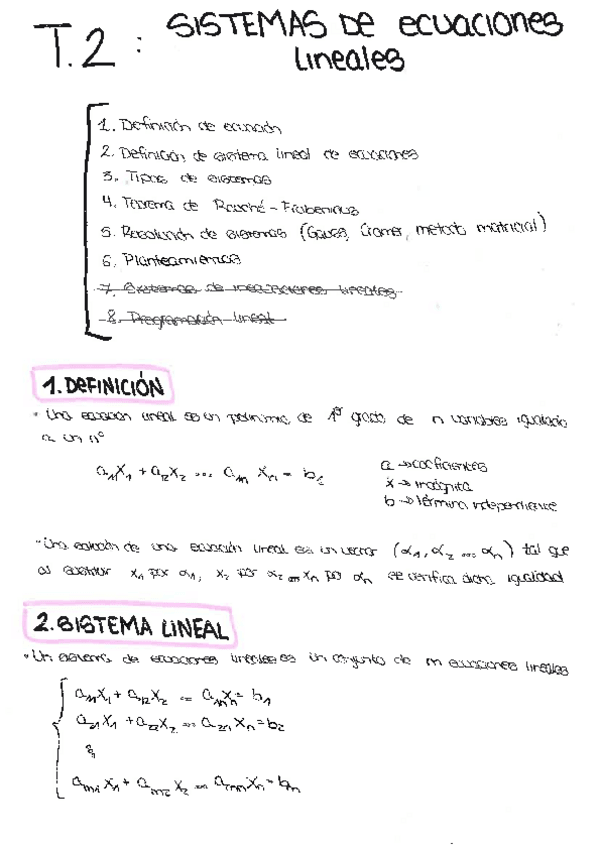 T.2: SISTEMAS DE ecuaciones
lineales
1. Definición de ecuación
2. Definición de sistema lineal de ecuaciones
3. Tipos de sistemas
4. Teorema de Rouché-Frobenius
5. Resolución de sistemas (Gauss, Cramer, método matricial)
6. Planteamientos
7. Sistemas de inecuaciones lineales
8. Programación lineal
1. DEFINICIÓN
• Una ecuación lineal es un polinomio de 1º grado de n variables igualado
a un nº
a₁₁X₁ + a₁₂X₂ ... a₁ₙ Xₙ = b₁
a → coeficientes
x → incógnita
b → término independiente
• Una solución de una ecuación lineal es un vector (α₁, α₂ ... αₙ) tal que
al sustituir x₁ por α₁, x₂ por α₂ ... xₙ por αₙ se verifica dicha igualdad
2. SISTEMA LINEAL
• Un sistema de ecuaciones lineales es un conjunto de m ecuaciones lineales
a₁₁X₁ + a₁₂X₂ ... a₁ₙXₙ = b₁
a₂₁X₁ + a₂₂X₂ ... a₂ₙXₙ = b₂
aₘ₁X₁ + aₘ₂X₂ ... aₘₙXₙ = bₘ